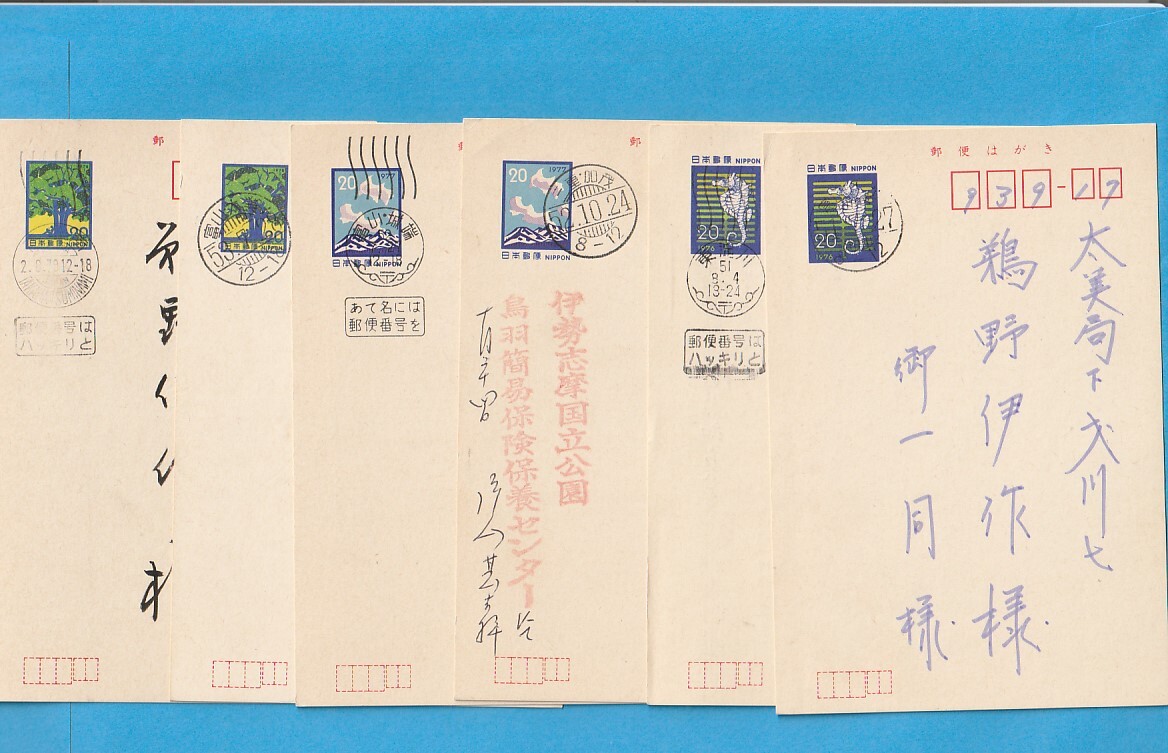 郵
日本郵便 NIPPON
2.6.79 12-18
郵便番号は
ハッキリと
日本郵便 NIPPON
富山
53
12-18
20 1977
日本郵便 NIPPON
富山
あて名には
郵便番号を
郵
20 1977
日本郵便 NIPPON
東加茂
52.10.24
8-12
伊勢志摩国立公園
鳥羽簡易保険保養センター
日本郵便 NIPPON
20
1976
51
8.4
18-24
郵便番号は
ハッキリと
郵便はがき
日本郵便 NIPPON
20
1976
27
12
939-17
太美局下
鵜野伊作様
御一同様